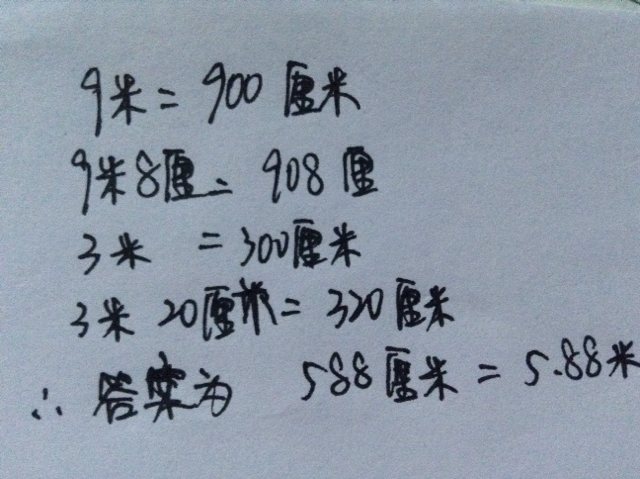 9米=900厘米
9米8厘=908厘
3米 =300厘米
3米20厘米=320厘米
∴答案为 588厘米=5.88米